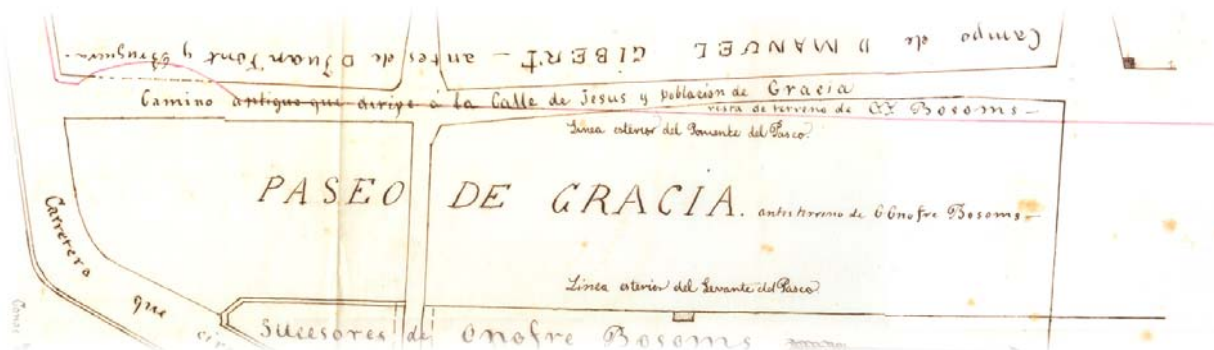 Campo de D MANUEL GIBERT - antes de D Juan Font y Bruguera
Camino antiguo que dirige à la Calle de Jesus y poblacion de Gracia
resta de terreno de Bosoms -
Linea esterior del Poniente del Paseo.
PASEO DE GRACIA. antes terreno de Onofre Bosoms -
Carretero que
Linea esterior del Levante del Paseo.
Sucesores de Onofre Bosoms